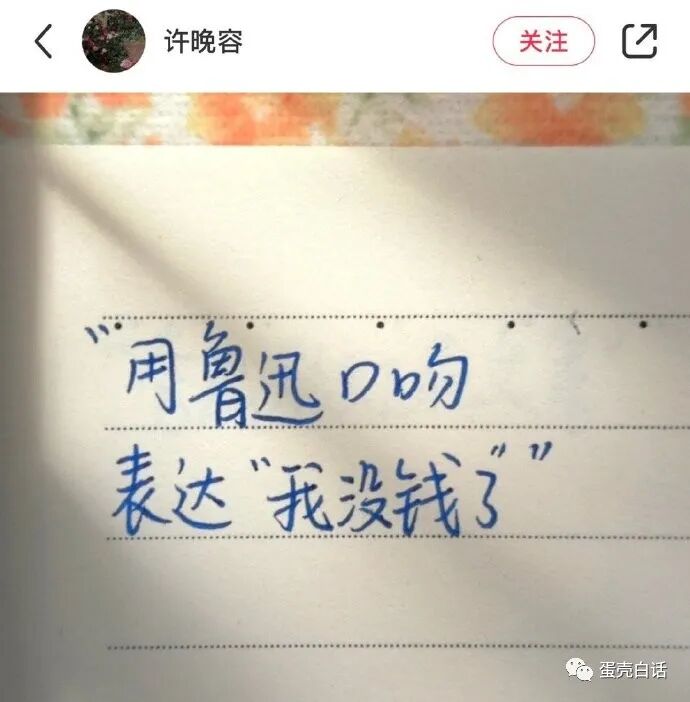 许晚容
关注
“用鲁迅口吻
表达“我没钱了””
蛋壳白话